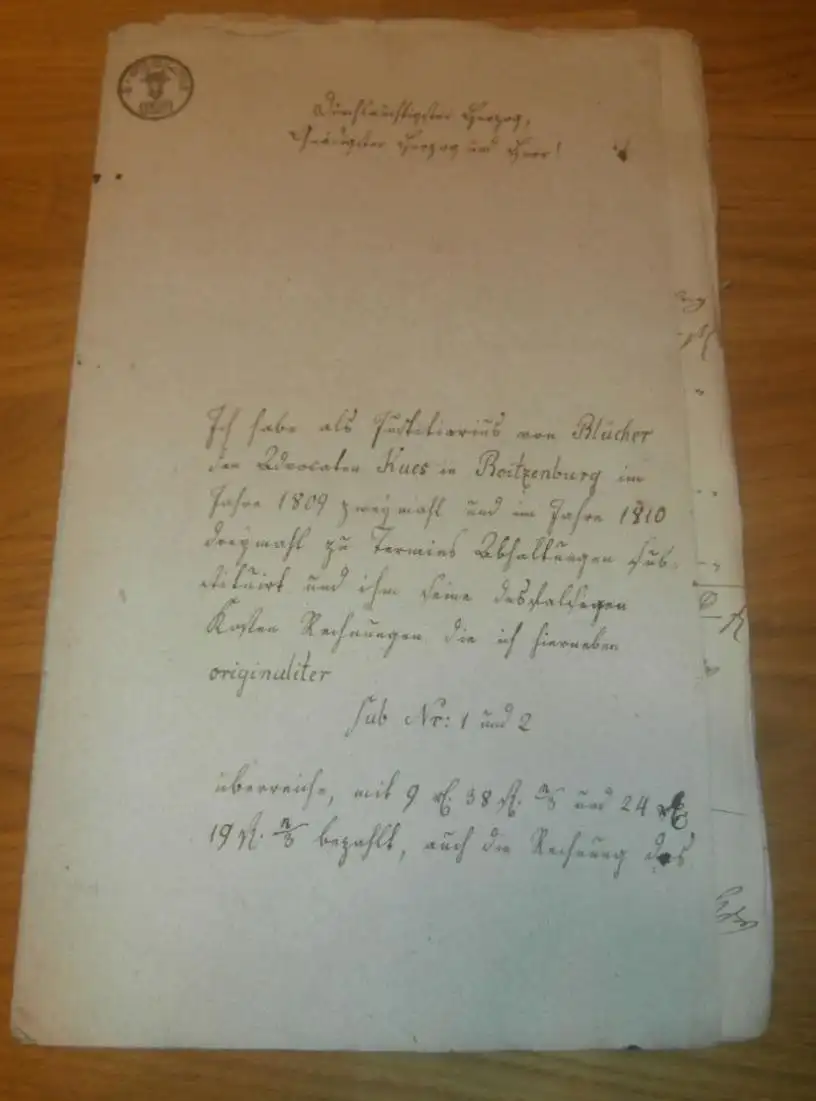 Durchlauchtigster Herzog,
Gnädigster Herzog und Herr!
Ich habe als Justitiarius von Blücher
den Advocaten Kues in Boitzenburg im
Jahre 1809 zweymahl und im Jahre 1810
dreymahl zu Termins Abhaltungen sub-
stituirt und ihm seine desfalsigen
Kosten Rechnungen die ich hierneben
originaliter
sub Nr: 1 und 2
überreiche, mit 9 rt. 38 ßl. n/3 und 24 rt
19 ßl. n/3 bezahlt, auch die Rechnung des